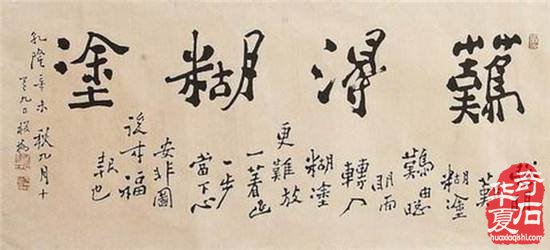 難得糊塗
明
難
糊塗
難由聰
明而
轉入
糊塗
更難放
一着退
一步
當下心
安非圖
後來福
報也
乾隆辛未秋九月十
有九日板橋
华夏奇石
huaxiaqishi.com